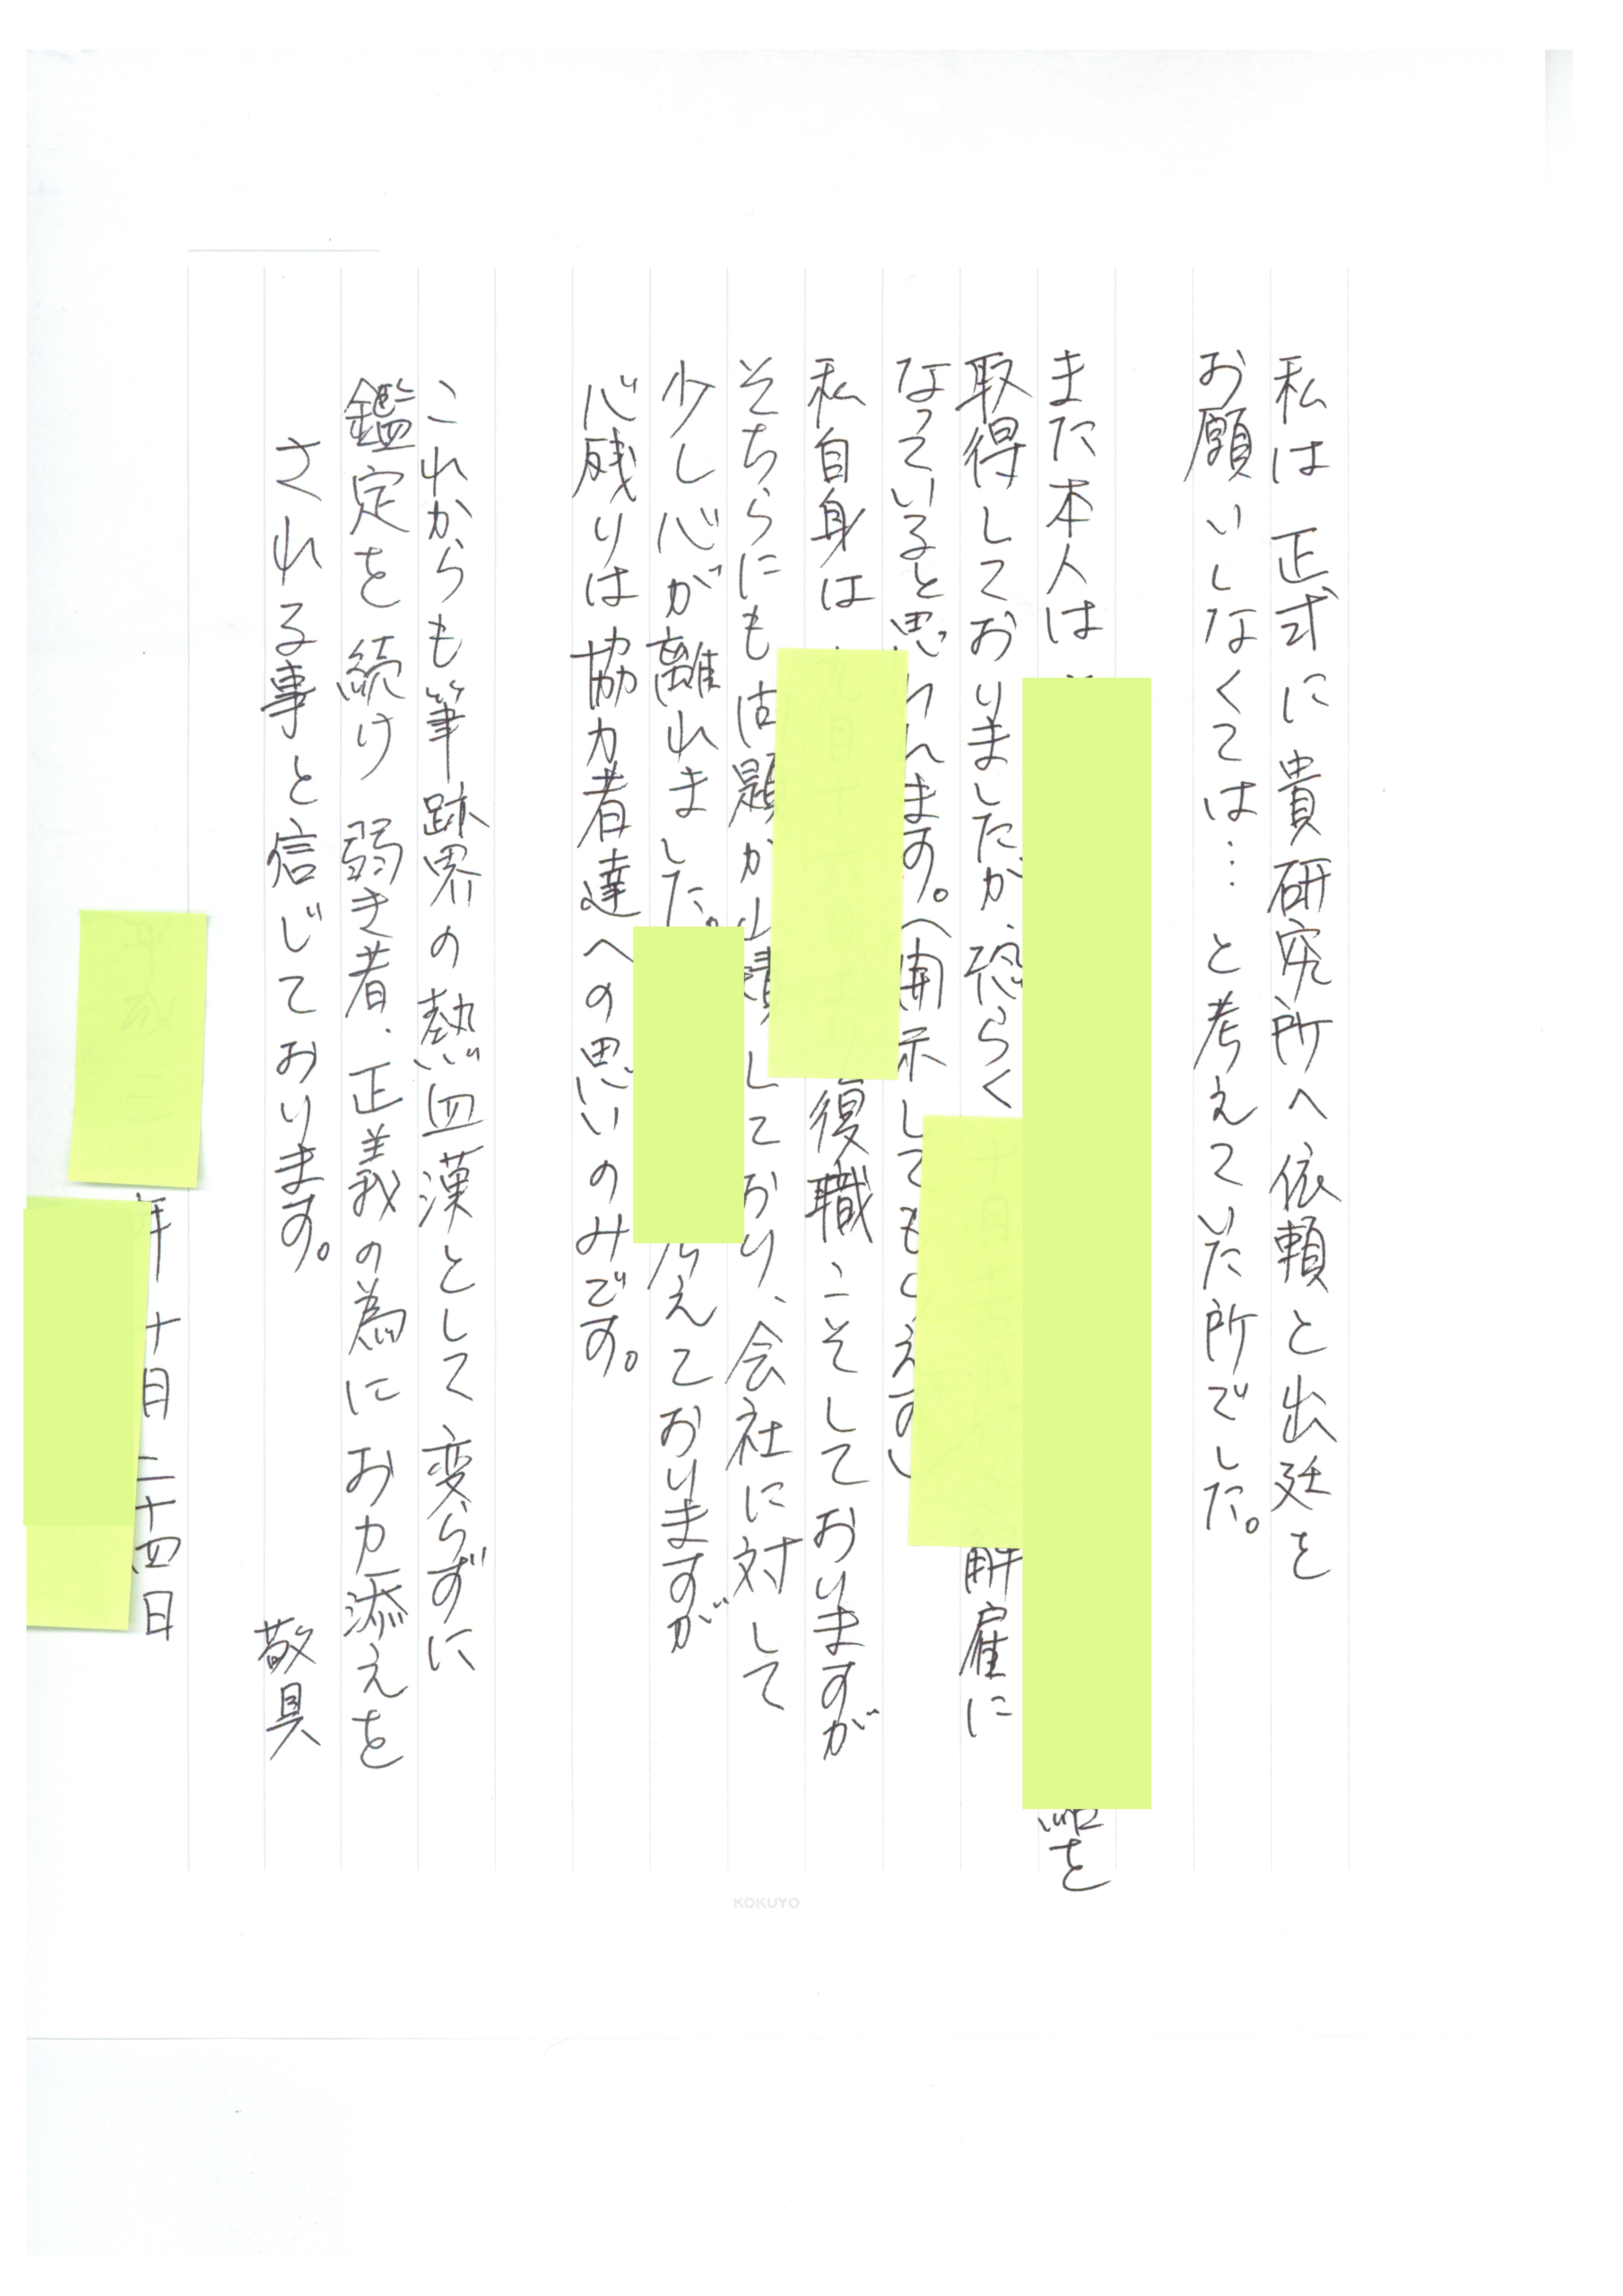 私は 正式に貴研究所へ依頼と出廷を
お願いしなくては…と考えていた所でした。
また本人は を
取得しておりましたが、恐らく 解雇に
なっていると思われます。(開示してもらえず)
私自身は 復職こそしておりますが
そちらにも問題が山積しており、会社に対して
少し心が離れました。 考えておりますが
心残りは協力者達への思いのみです。
これからも筆跡界の熱血漢として変らずに
鑑定を続け 弱き者、正義の為にお力添えを
される事と信じております。
敬具
年 十月二十四日
KOKUYO